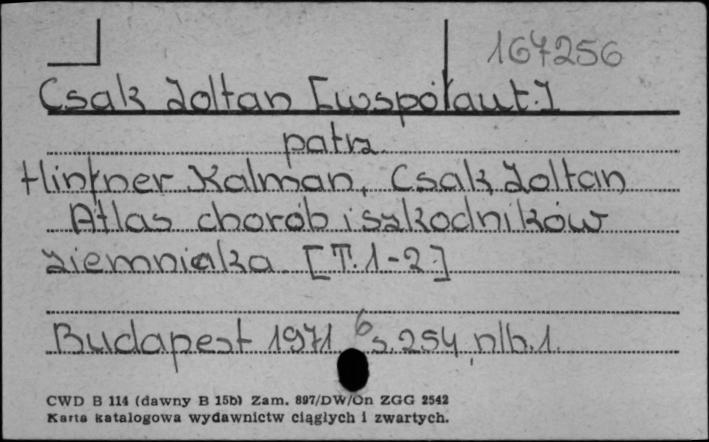 167256
Csak Zoltan [współaut.]
patrz
Hintner Kalman, Csak Zoltan
Atlas chorób i szkodników
ziemniaka [T.1-2]
Budapest 1971 8 s. 254 nlb. 1.
CWD B 114 (dawny B 15b) Zam. 897/DW/On ZGG 2542
Karta katalogowa wydawnictw ciągłych i zwartych.